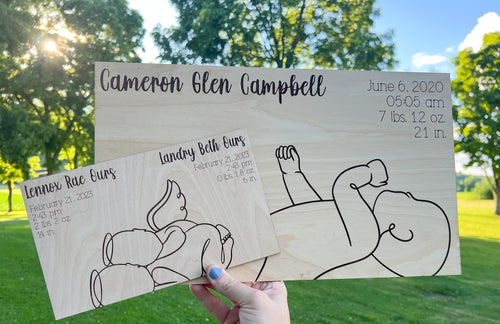 Cameron Glen Campbell
June 6, 2020
05:05 am
7 lbs. 12 oz.
21 in.
Lennox Rae Ours
February 21, 2023
2:43 pm
2 lbs 2 oz.
14 in.
Landry Beth Ours
February 21, 2023
2:43 pm
0 lbs. 1.8 oz.
6 in.